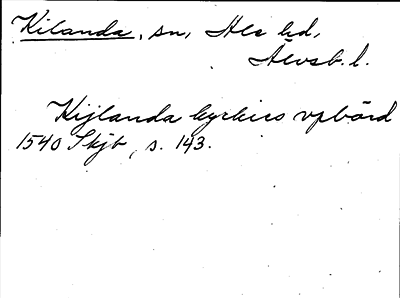 Kilanda, sn, Ale hd,
Älvsb. l.
Kijlanda kyrkies vpbörd
1540 Skjb, s. 143.